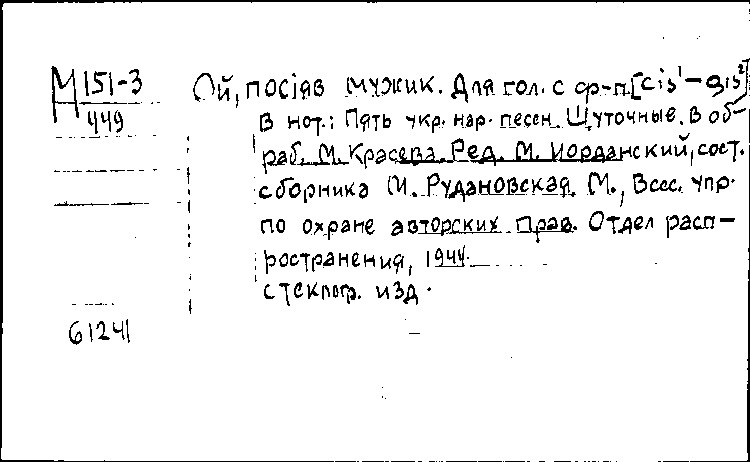 М 151-3
449
Ой, посіяв мужик. Для гол. с ф-п. [cis¹ – gis²]
В нот.: Пять укр. нар. песен. Шуточные. В об-
раб. М. Красева. Ред. М. Иорданский, сост.
сборника М. Рудановская. М., Всес. упр.
по охране авторских прав. Отдел расп-
ространения, 1944.
стеклогр. изд.
61241